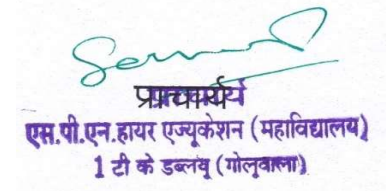 प्राचार्य
एस.पी.एन.हायर एज्यूकेशन (महाविद्यालय)
1 टी के डब्लयू (गोलूवाला)